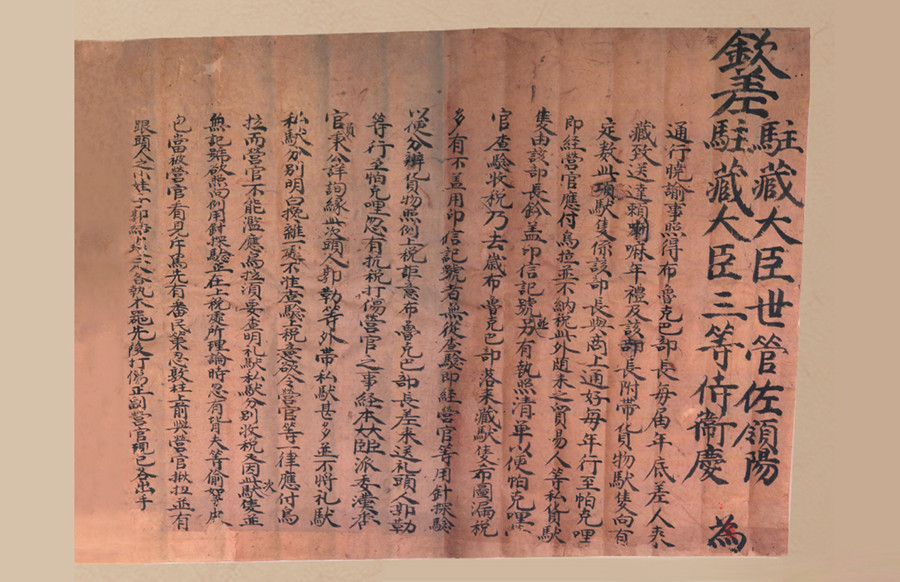 駐藏大臣世管佐領陽
欽差駐藏大臣三等侍衛慶 為
通行曉諭事照得布魯克巴部長每屆年底差人來
藏致送達賴喇嘛年禮及該部長附帶貨物馱隻向有
定數此項馱隻係該部長與商上通好每年行至帕克哩
即經營官應付烏拉並不納稅此外隨來之貿易人等私貨馱
隻由該部長鈐盖印信記號並另有執照清單以便帕克哩
官查驗收稅乃去歲布魯克巴部落來藏馱隻布圖漏稅
多有不盖用印信記號者無從查驗即經營官等用針探驗
以便分辨貨物照例上稅詎意布魯克巴部長差來送礼頭人郭勒
等行至帕克哩忽有抗稅打傷營官之事經本大臣派委漢番
官員秉公詳詢緣此次頭人郭勒等外帶私馱甚多並不將礼馱
私馱分別明白攙雜一處不准查驗上稅意欲令營官等一律應付烏
拉而營官不能濫應烏拉須要查明礼馱私馱分別收稅又因此次馱隻並
無記號欲照向例用針探驗正在上稅處所理論時忽有貨夫等偷
當被營官看見斥罵先有番民策忍敦柱上前與營官揪扭並有
跟頭人之小娃子郭 各執木 先後打傷正副營官現已各出手